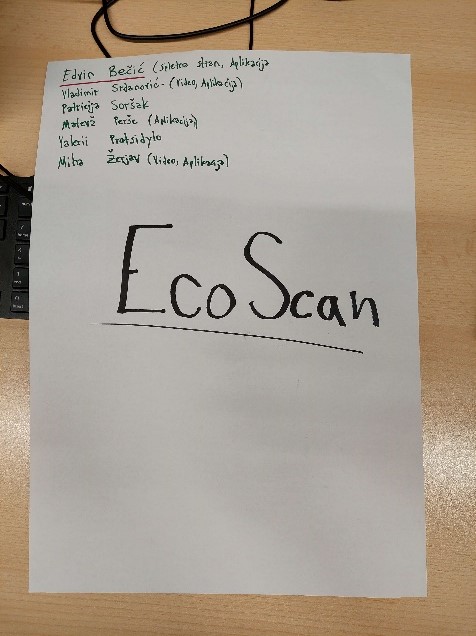 Edvin Bečić (Spletna stran, Aplikacija
Vladimir Srdanović - (Video, Aplikacija)
Patricija Soršak
Matevž Perše (Aplikacija)
Valerii Protsidylo
Miha Žerjav (Video, Aplikacija)
EcoScan